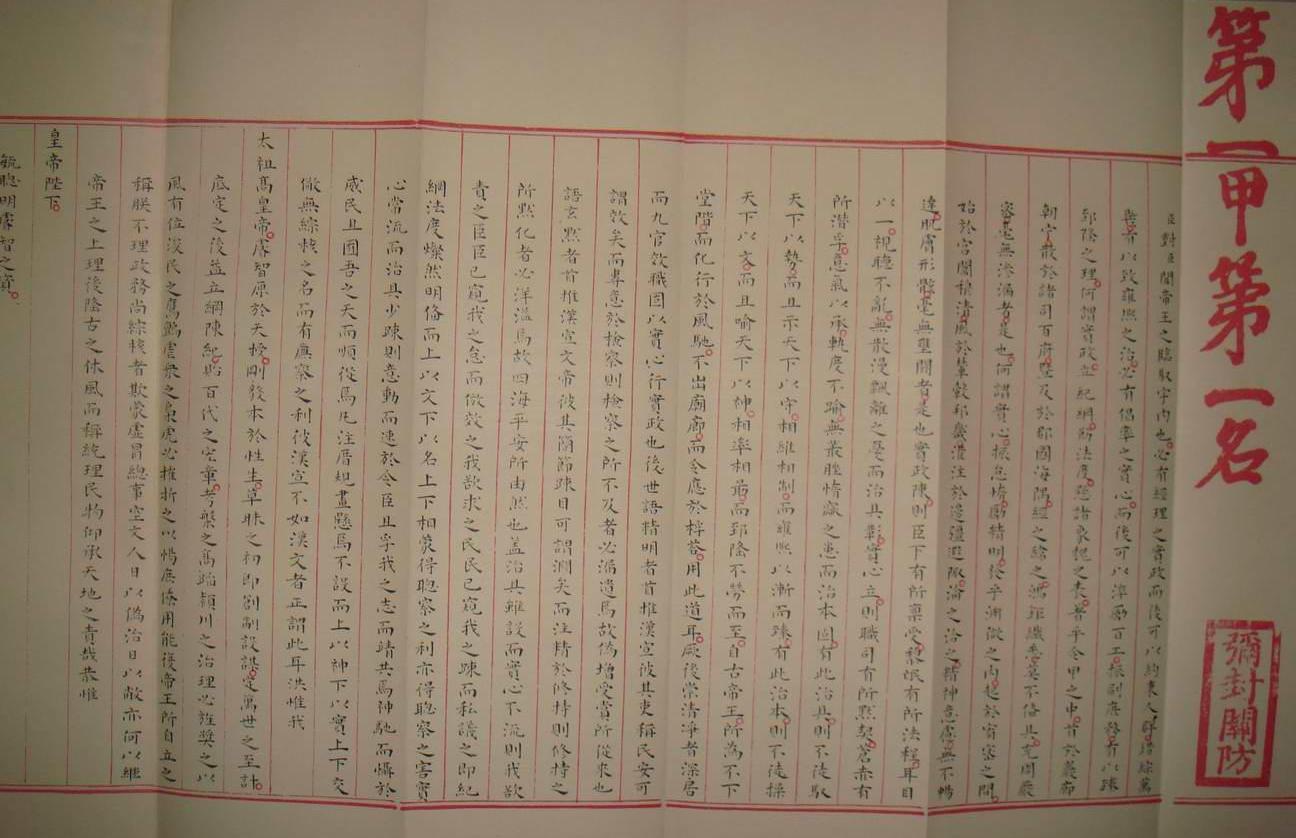 第一甲第一名
彌封關防
臣對臣聞帝王之臨馭宇內也必有經理之實政而後可以約束人群錯綜萬
機有以致雍熙之治必有倡率之實心而後可以淬勵百工振刷庶務有以臻
郅隆之理何謂實政立紀綱飭法度懸諸象魏之表著乎令甲之中首於巖廊
朝宁散於諸司百府暨及於郡國海隅經之緯之鴻鉅纖悉莫不備具充周嚴
密毫無滲漏者是也何謂實心振怠惰勵精明發乎淵微之內起於宥密之間
始於宮闈穆清風於輦轂邦畿灌注於邊疆遐陬淪之洽之精神意慮無不暢
達肌膚形骸毫無壅閼者是也實政陳則臣下有所稟受黎氓有所法程耳目
以一視聽不亂無散漫飄離之憂而治具彰實心立則職司有所默契蒼赤有
所潛孚意氣以承軌度不踰無叢脞惰窳之患而治本固有此治具則不徒馭
天下以勢而且示天下以守相維相制而雍熙以漸而臻有此治本則不徒操
天下以文而且喻天下以神相率相勗而郅隆不勞而至自古帝王所為不下
堂階而化行於風馳不出廟廊而令應於桴答用此道耳厥後崇清淨者深居
而九官效職固以實心行實政也後世語精明者首推漢宣彼其吏稱民安可
謂效矣而專意於檢察則檢察之所不及者必漏遺焉故偽增受賞所從來也
語玄默者首推漢宣文帝彼其簡節疎目可謂淵矣而注精於修持則修持之
所默化者必洋溢焉故四海平安所由然也蓋治具雖設而實心不流則我欲
責之臣臣已窺我之怠而倣效之我欲求之民民已窺我之疎而私議之即紀
綱法度燦然明備而上以文下以名上下相蒙得聰察之利亦得聰察之害實
心常流而治具少疎則意動而速於令臣且孚我之志而靖共焉神馳而懾於
威民且囿吾之天而順從焉凡注厝規畫懸焉不設而上以神下以實上下交
儆無綜核之名而有廉察之利彼漢宣不如漢文者正謂此耳洪惟我
太祖高皇帝睿智原於天授剛毅本於性生草昧之初即創制設謀定萬世之至計
底定之後益立綱陳紀貽百代之憲章考槃之高踏潁川之治理必旌獎之以
風有位浚民之鷹鸇虐眾之梟虎必摧折之以惕庶僚用能復帝王所自立之
稱朕不理政務尚綜核者欺蒙虛冒總事空文人日以偽治日以敝亦何以繼
帝王之上理後隆古之休風而稱統理民物仰承天地之責哉恭惟
皇帝陛下
毓聰明睿智之資